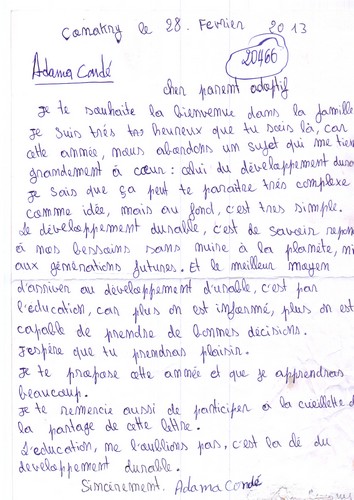 Conakry le 28. Fevrier 2013
20466
Adama Condé
cher parent adoptif
Je te souhaite la bienvenue dans la famille
Je suis très très heureux que tu sois là, car
cette année, nous abordons un sujet qui me tien
grandement à cœur : celui du développement dura
Je sais que ça peut te paraitre très complexe
comme idée, mais au fond, c'est très simple.
Le développement durable, c'est de savoir repon
à nos bessoins sans nuire à la planète, ni
aux générations futures. Et le meilleur moyen
d'arriver au développement d'urable, c'est par
l'éducation, car plus on est informé, plus on est
capable de prendre de bonnes décisions.
J'espère que tu prendras plaisir.
Je te propose cette année et que je apprendras
beaucoup.
Je te remercie aussi de participer à la cueillette d
la partage de cette lettre.
L'education, ne l'oublions pas, c'est la clé du
developpement durable.
Sincèrement. Adama Condé